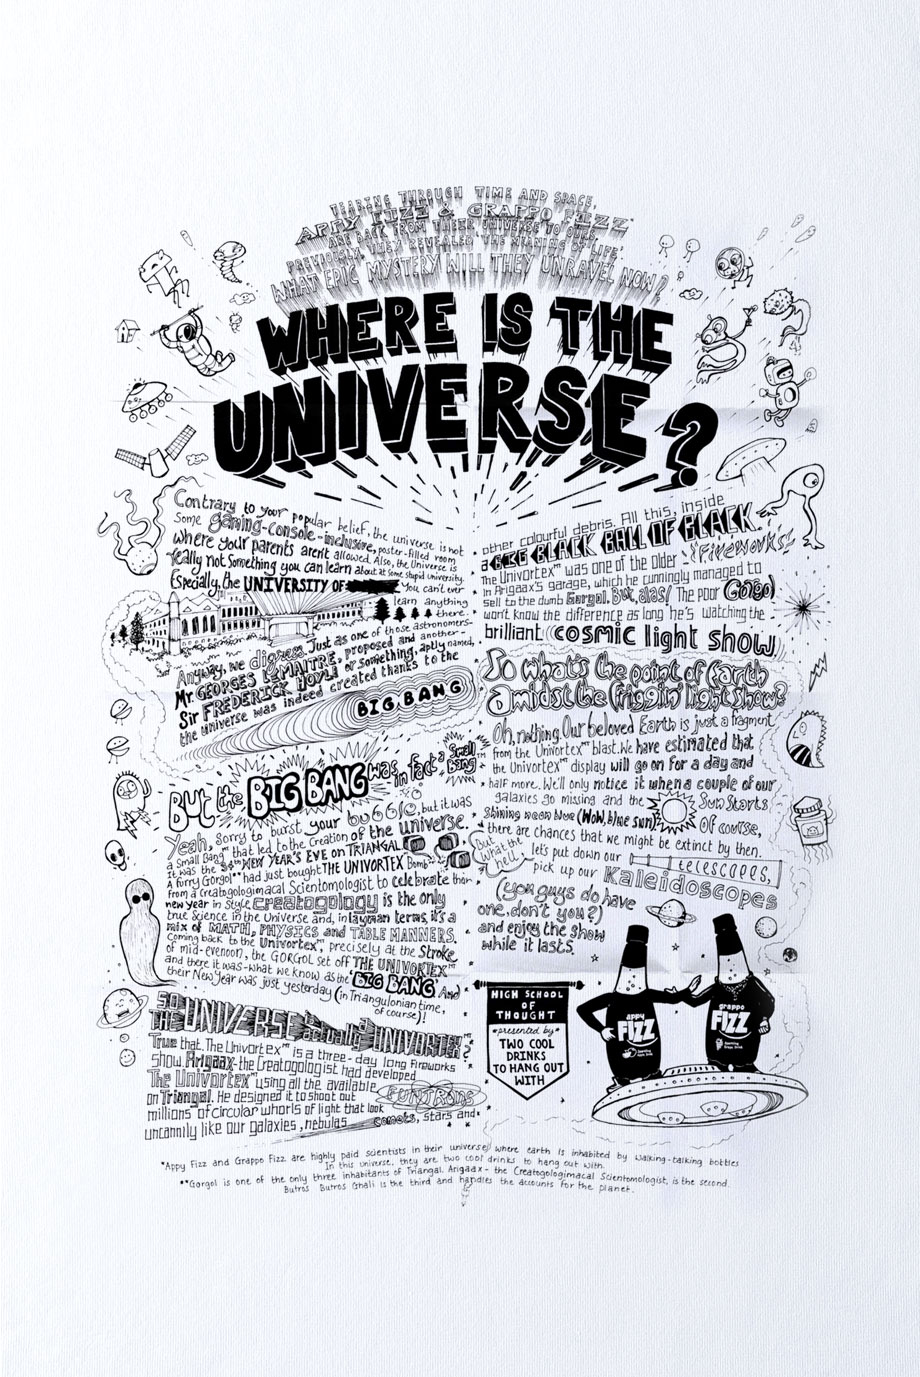 TEARING THROUGH TIME AND SPACE,
APPY FIZZ & GRAPPO FIZZ*
ARE BACK FROM THEIR UNIVERSE TO OURS.
PREVIOUSLY, THEY REVEALED 'THE MEANING OF LIFE'
WHAT EPIC MYSTERY WILL THEY UNRAVEL NOW?
WHERE IS THE
UNIVERSE?
Contrary to your popular belief, the universe is not
some gaming-console-inclusive, poster-filled room
where your parents aren't allowed. Also, the Universe is
really not something you can learn about at some stupid university.
Especially, the UNIVERSITY OF
You can't ever
learn anything
there.
Anyway, we digress. Just as one of those astronomers-
Mr. GEORGES LEMAITRE, proposed and another-
Sir FREDERICK HOYLE or something, aptly named,
the universe was indeed created thanks to the
BIG BANG
But the BIG BANG was in fact a Small Bang
Yeah, sorry to burst your bubble, but it was
a Small Bang™ that led to the creation of the universe.
It was the New YEAR'S EVE on TRIANGAL
A furry Gorgol** had just bought THE UNIVORTEX™ Bomb
from a Creatogologimacal Scientomologist to celebrate their
new year in style. creatogology is the only
true science in the Universe and, in layman terms, it's a
mix of MATH, PHYSICS and TABLE MANNERS.
Coming back to the Univortex™ precisely at the stroke
of mid-evenoon, the GORGOL set off THE UNIVORTEX™
and there it was-what we know as the 'BIG BANG'. And
their New Year was just yesterday (in Triangulonian time,
of course)!
SO
THE UNIVERSE is actually UNIVORTEX™?
True that. The Univortex™ is a three-day long fireworks
show. Arigaax-the Creatogologist had developed
The Univortex™ using all the available FUNTRONS
on Triangal. He designed it to shoot out
millions of circular whorls of light that look
uncannily like our galaxies, nebulas, comets, stars and
other colourful debris. All this, inside
a BIG BLACK BALL OF BLACK.
The Univortex™ was one of the older (FIREWORKS!)
in Arigaax's garage, which he cunningly managed to
sell to the dumb Gorgol. But, alas! The poor Gogo)
won't know the difference as long he's watching the
brilliant cosmic light show.
So what's the point of Earth
Amidst the friggin' light show?
Oh, nothing. Our beloved Earth is just a fragment
from the Univortex™ blast. We have estimated that
the Univortex™ display will go on for a day and
half more. We'll only notice it when a couple of our
galaxies go missing and the Sun starts
shining neon blue (Wow, blue sun). Of course,
there are chances that we might be extinct by then.
But what the hell,
let's put down our telescopes,
pick up our Kaleidoscopes
(you guys do have
one, don't you?)
and enjoy the show
while it lasts.
HIGH SCHOOL
OF
THOUGHT
*presented by*
TWO COOL
DRINKS
TO HANG OUT
WITH
appy
FIZZ
grappo
FIZZ
*Appy Fizz and Grappo Fizz are highly paid scientists in their universe, where earth is inhabited by walking-talking bottles
In this universe, they are two cool drinks to hang out with.
**Gorgol is one of the only three inhabitants of Triangal. Arigaax - the Creatogologimacal Scientomologist, is the second.
Butros Butros Ghali is the third and handles the accounts for the planet.